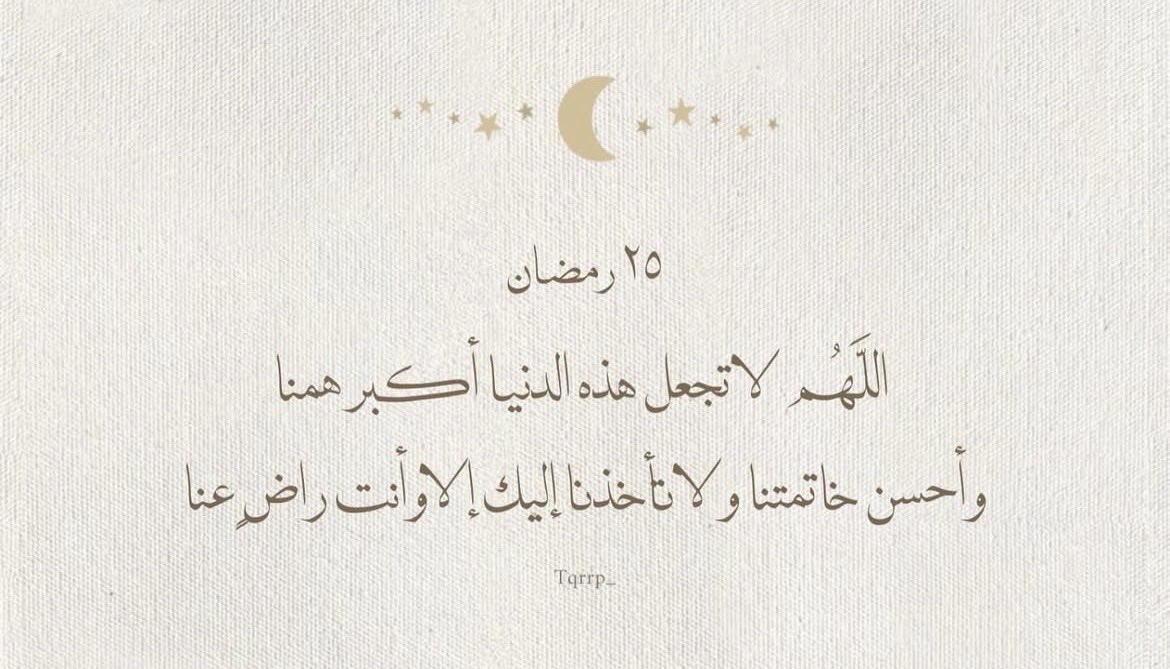 ٢٥ رمضان
اللَّهُم لا تجعل هذه الدنيا أكبر همنا
وأحسن خاتمتنا و لا تأخذنا إليك إلا وأنت راضٍ عنا
Tqrrp_